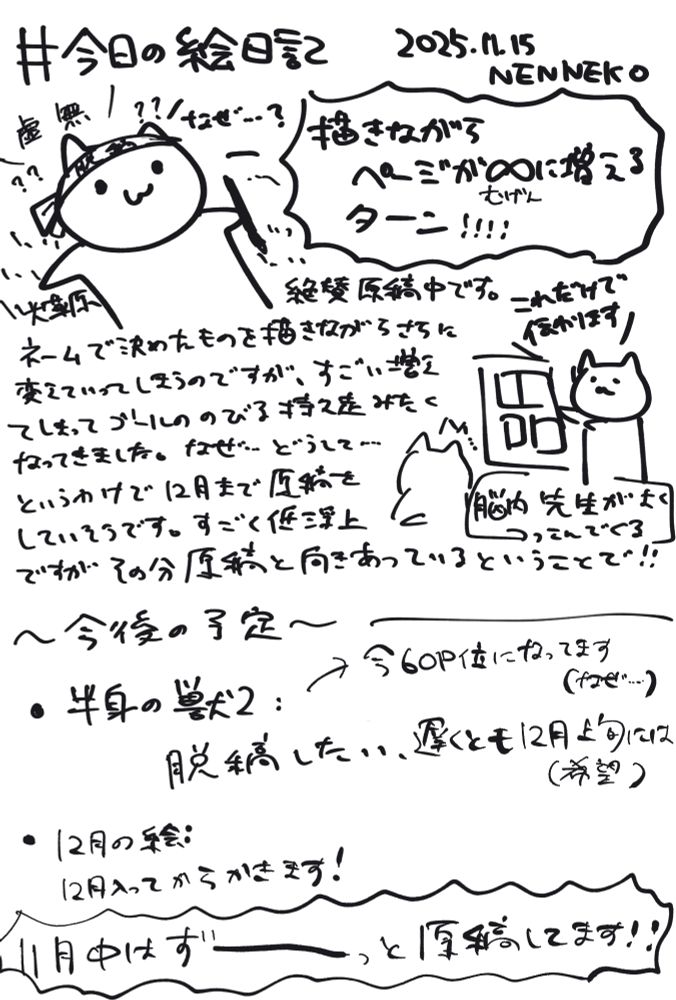 #今日の絵日記
2025.11.15
NENNEKO
虚無
??
なぜ…?
??
描きながら
ページが∞に増える
むげん
ターン!!!!
脱稿
絶賛原稿中です。
ネームで決めたものを描きながらさらに
変えていってしまうのですが、すごい増え
てしまってゴールののびる持久走みたく
なってきました。なぜ…どうして…
というわけで12月まで原稿を
していそうです。すごく低浮上
ですがその分原稿と向きあっているということで!!
これだけで
伝わります
脳内先生がよく
つっこんでくる
〜今後の予定〜
・半身の獣2:
→今60P位になってます
(なぜ…)
脱稿したい、遅くとも12月上旬には
(希望)
・12月の絵:
12月入ってからかきます!
11月中はずーーーっと原稿してます!!